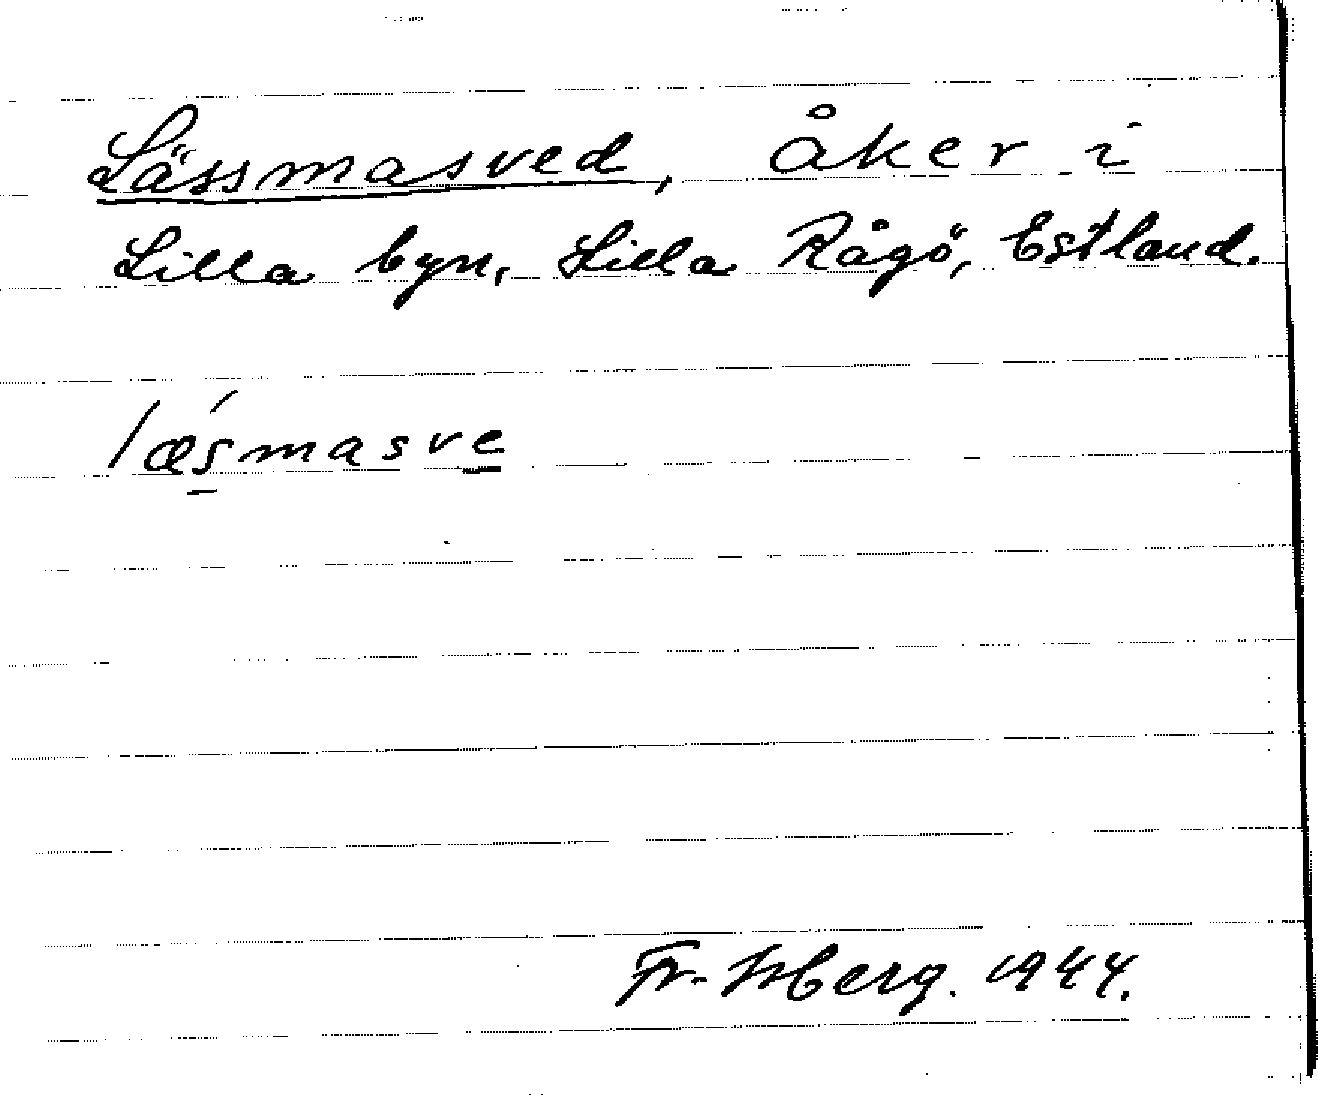 Lässmasved, åker i
Lilla byn, Lilla Rågö, Estland.
læ´smasve
Fr. Isberg. 1944.